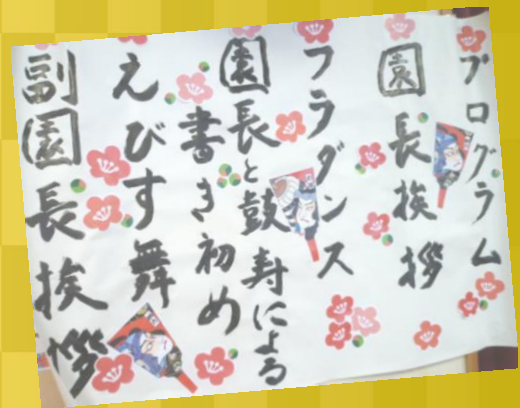 プログラム
園長挨拶
フラダンス
園長と鼓寿による
書き初め
えびす舞
副園長挨拶